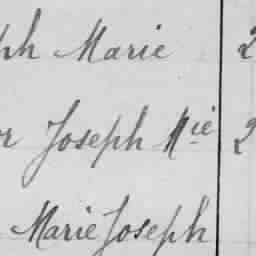 ph Marie 2
r Joseph Mie 2
Marie Joseph